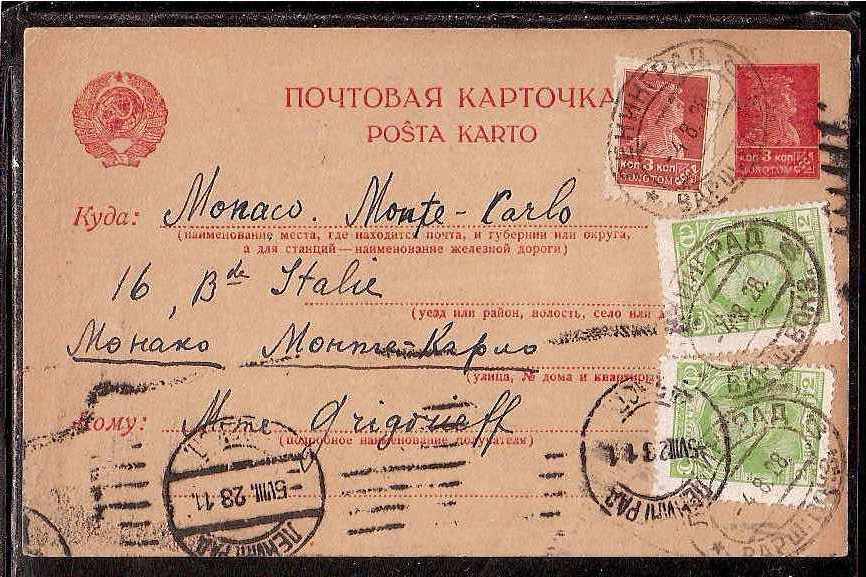 ПОЧТОВАЯ КАРТОЧКА
POŜTA KARTO
КОП 3 КОП
ЗОЛОТОМ
КОП 3 КОП
ЗОЛОТОМ
ЛЕНИНГРАД 2
-4.8.28
ВАРШ
Куда: Monaco. Monte-Carlo
(наименование места, где находится почта, и губернии или округа,
а для станций—наименование железной дороги)
16, Bde Italie
(уезд или район, волость, село или
Монако Монте-Карло
(улица, № дома и квартиры
Кому: Mme Grigorieff
(подробное наименование получателя)
2
-4.8.28
ВАРШ. ВОКЗ.
2
-4.8.28
ВАРШ
5 VIII 28 11
ЛЕНИНГРАД
ЛЕНИНГРАД